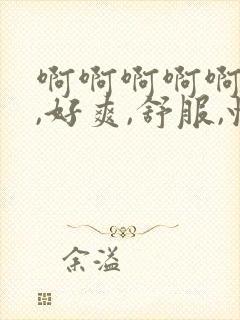 啊啊啊啊啊
,好爽,舒服,快
余溢